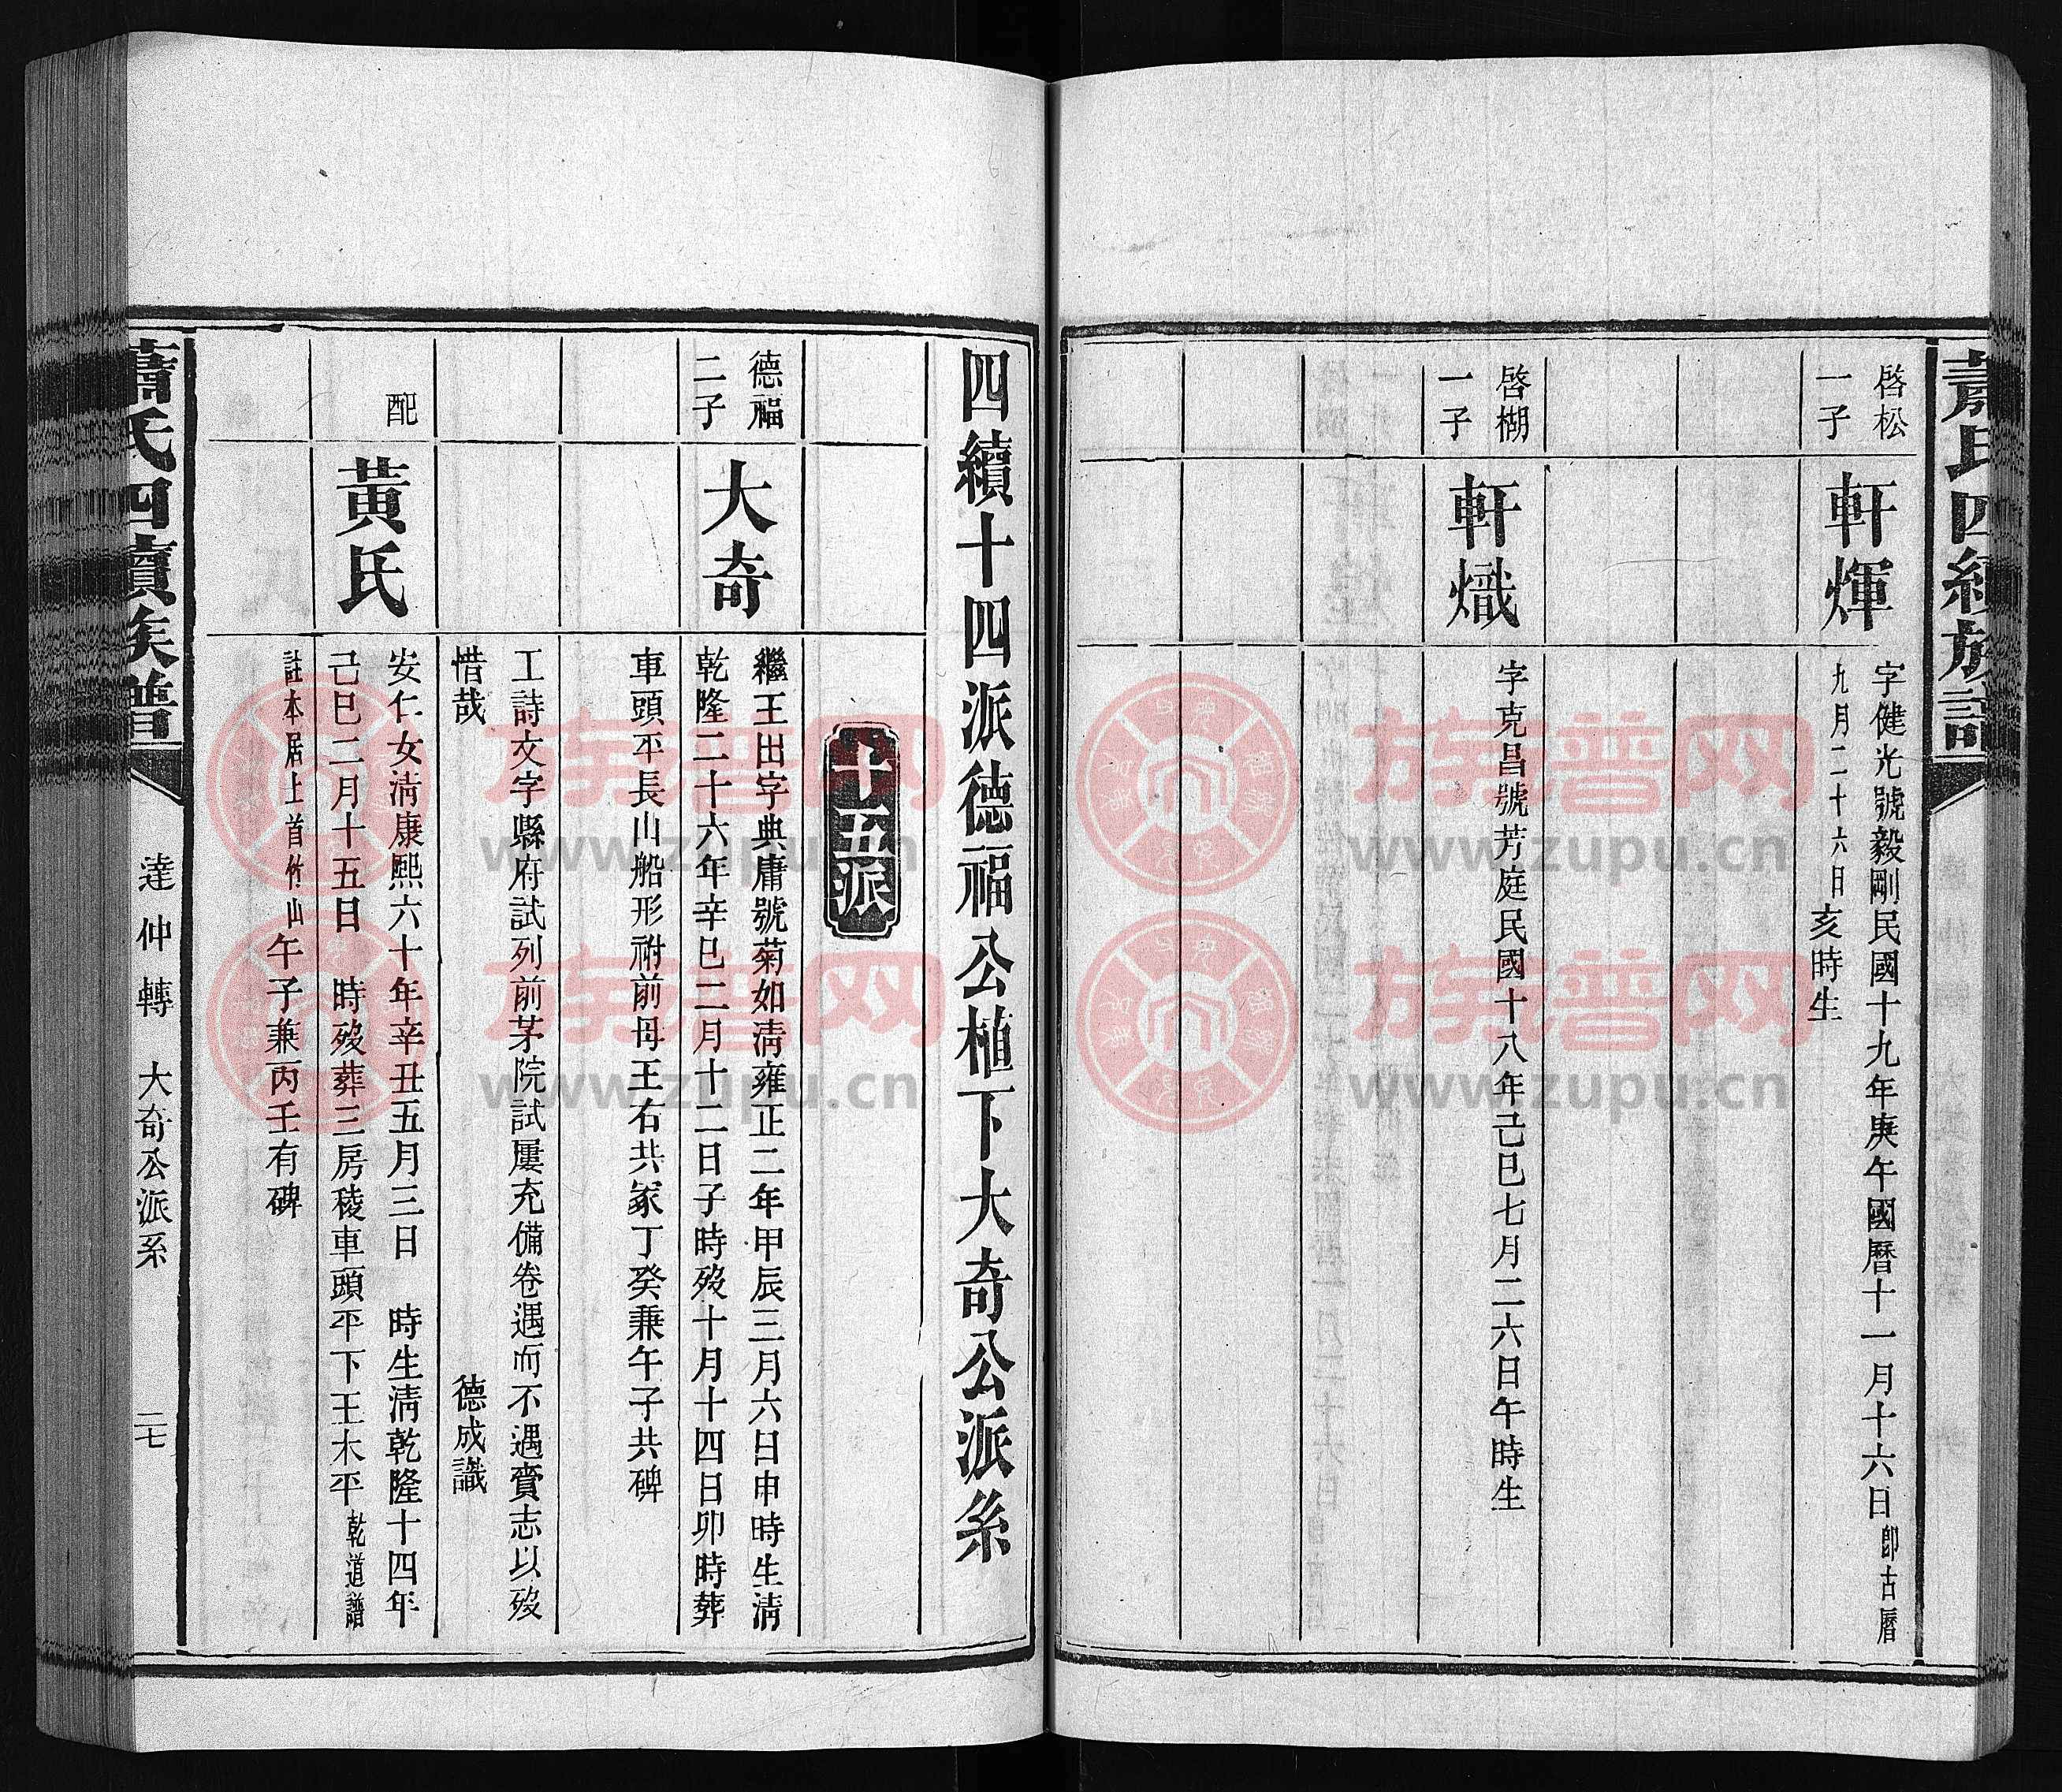 蕭氏四續族譜
啓松
一子
軒煇
字健光號毅剛民國十九年庚午國曆十一月十六日卽古曆
九月二十六日亥時生
啓楜
一子
軒熾
字克昌號芳庭民國十八年己巳七月二六日午時生
四續十四派德福公植下大奇公派系
十五派
德福
二子
大奇
繼王出字典庸號菊如淸雍正二年甲辰三月六日申時生淸
乾隆二十六年辛巳二月十二日子時歿十月十四日卯時葬
車頭平長山船形祔前母王右共冢丁癸兼午子共碑
工詩文字縣府試列前茅院試屢充備卷遇而不遇賫志以歿
惜哉 德成識
配
黃氏
安仁女淸康熙六十年辛丑五月三日 時生淸乾隆十四年
己巳二月十五日 時歿葬三房稜車頭平下王木平乾道譜
註本居上首竹山午子兼丙壬有碑
蕭氏四續族譜
達仲轉 大奇公派系
二七
族譜网
www.zupu.cn
族譜网
www.zupu.cn
族譜网
www.zupu.cn
族譜网
www.zupu.cn